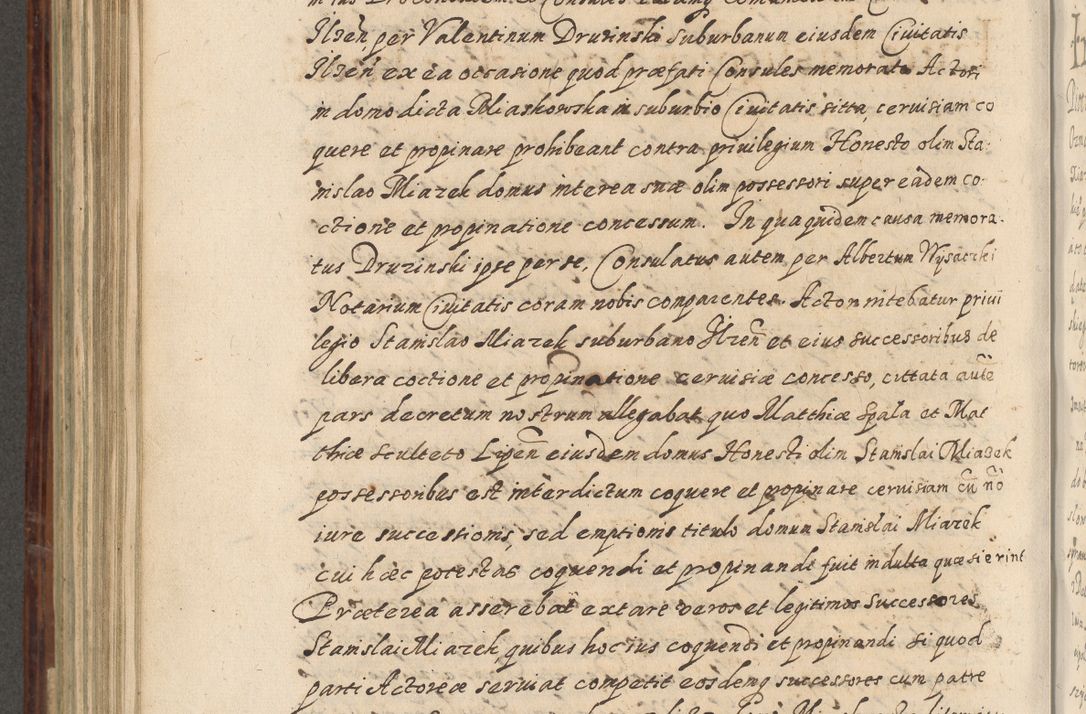 Ilzen̄ per Valentinum Druzinski suburbanum eiusdem Ciuitatis
Ilzen̄ ex ea occasione quod præfati Consules memorato Actori
in domo dicta Miaskowska in suburbio Ciuitatis sitta, ceruisiam co
quere et propinare prohibeant contra priuilegium Honesto olim Sta-
nislao Miazek domus interea suæ olim possessori super eadem co-
ctione et propinatione concessum. In qua quidem causa memora-
tus Druzinski ipse per se, Consulatus autem per Albertum Wysaczki
Notarium Ciuitatis coram nobis comparentes. Acton nitebatur priui
legio Stanislao Miazek suburbano Ilzen̄ et eius successoribus de
libera coctione et propinatione ceruisiæ concesso, cittata autē
pars decretum nostrum allegabat quo Matthiæ Spala et Mat
thiæ Sculteto Lipen̄ eiusdem domus Honesti olim Stanislai Miazek
possessoribus est interdictum coquere et propinare ceruisiam cū nō
iure successionis, sed emptionis titulo domum Stanislai Miazek
cui hæc potestas coquendi et propinandi fuit indulta quæsierint
Præterea asserebat extare veros et legitimos Successores
Stanislai Miazek quibus hoc ius coquendi et propinandi si quod
parti Actoreæ seruiat competit eosdemq successores cum patre